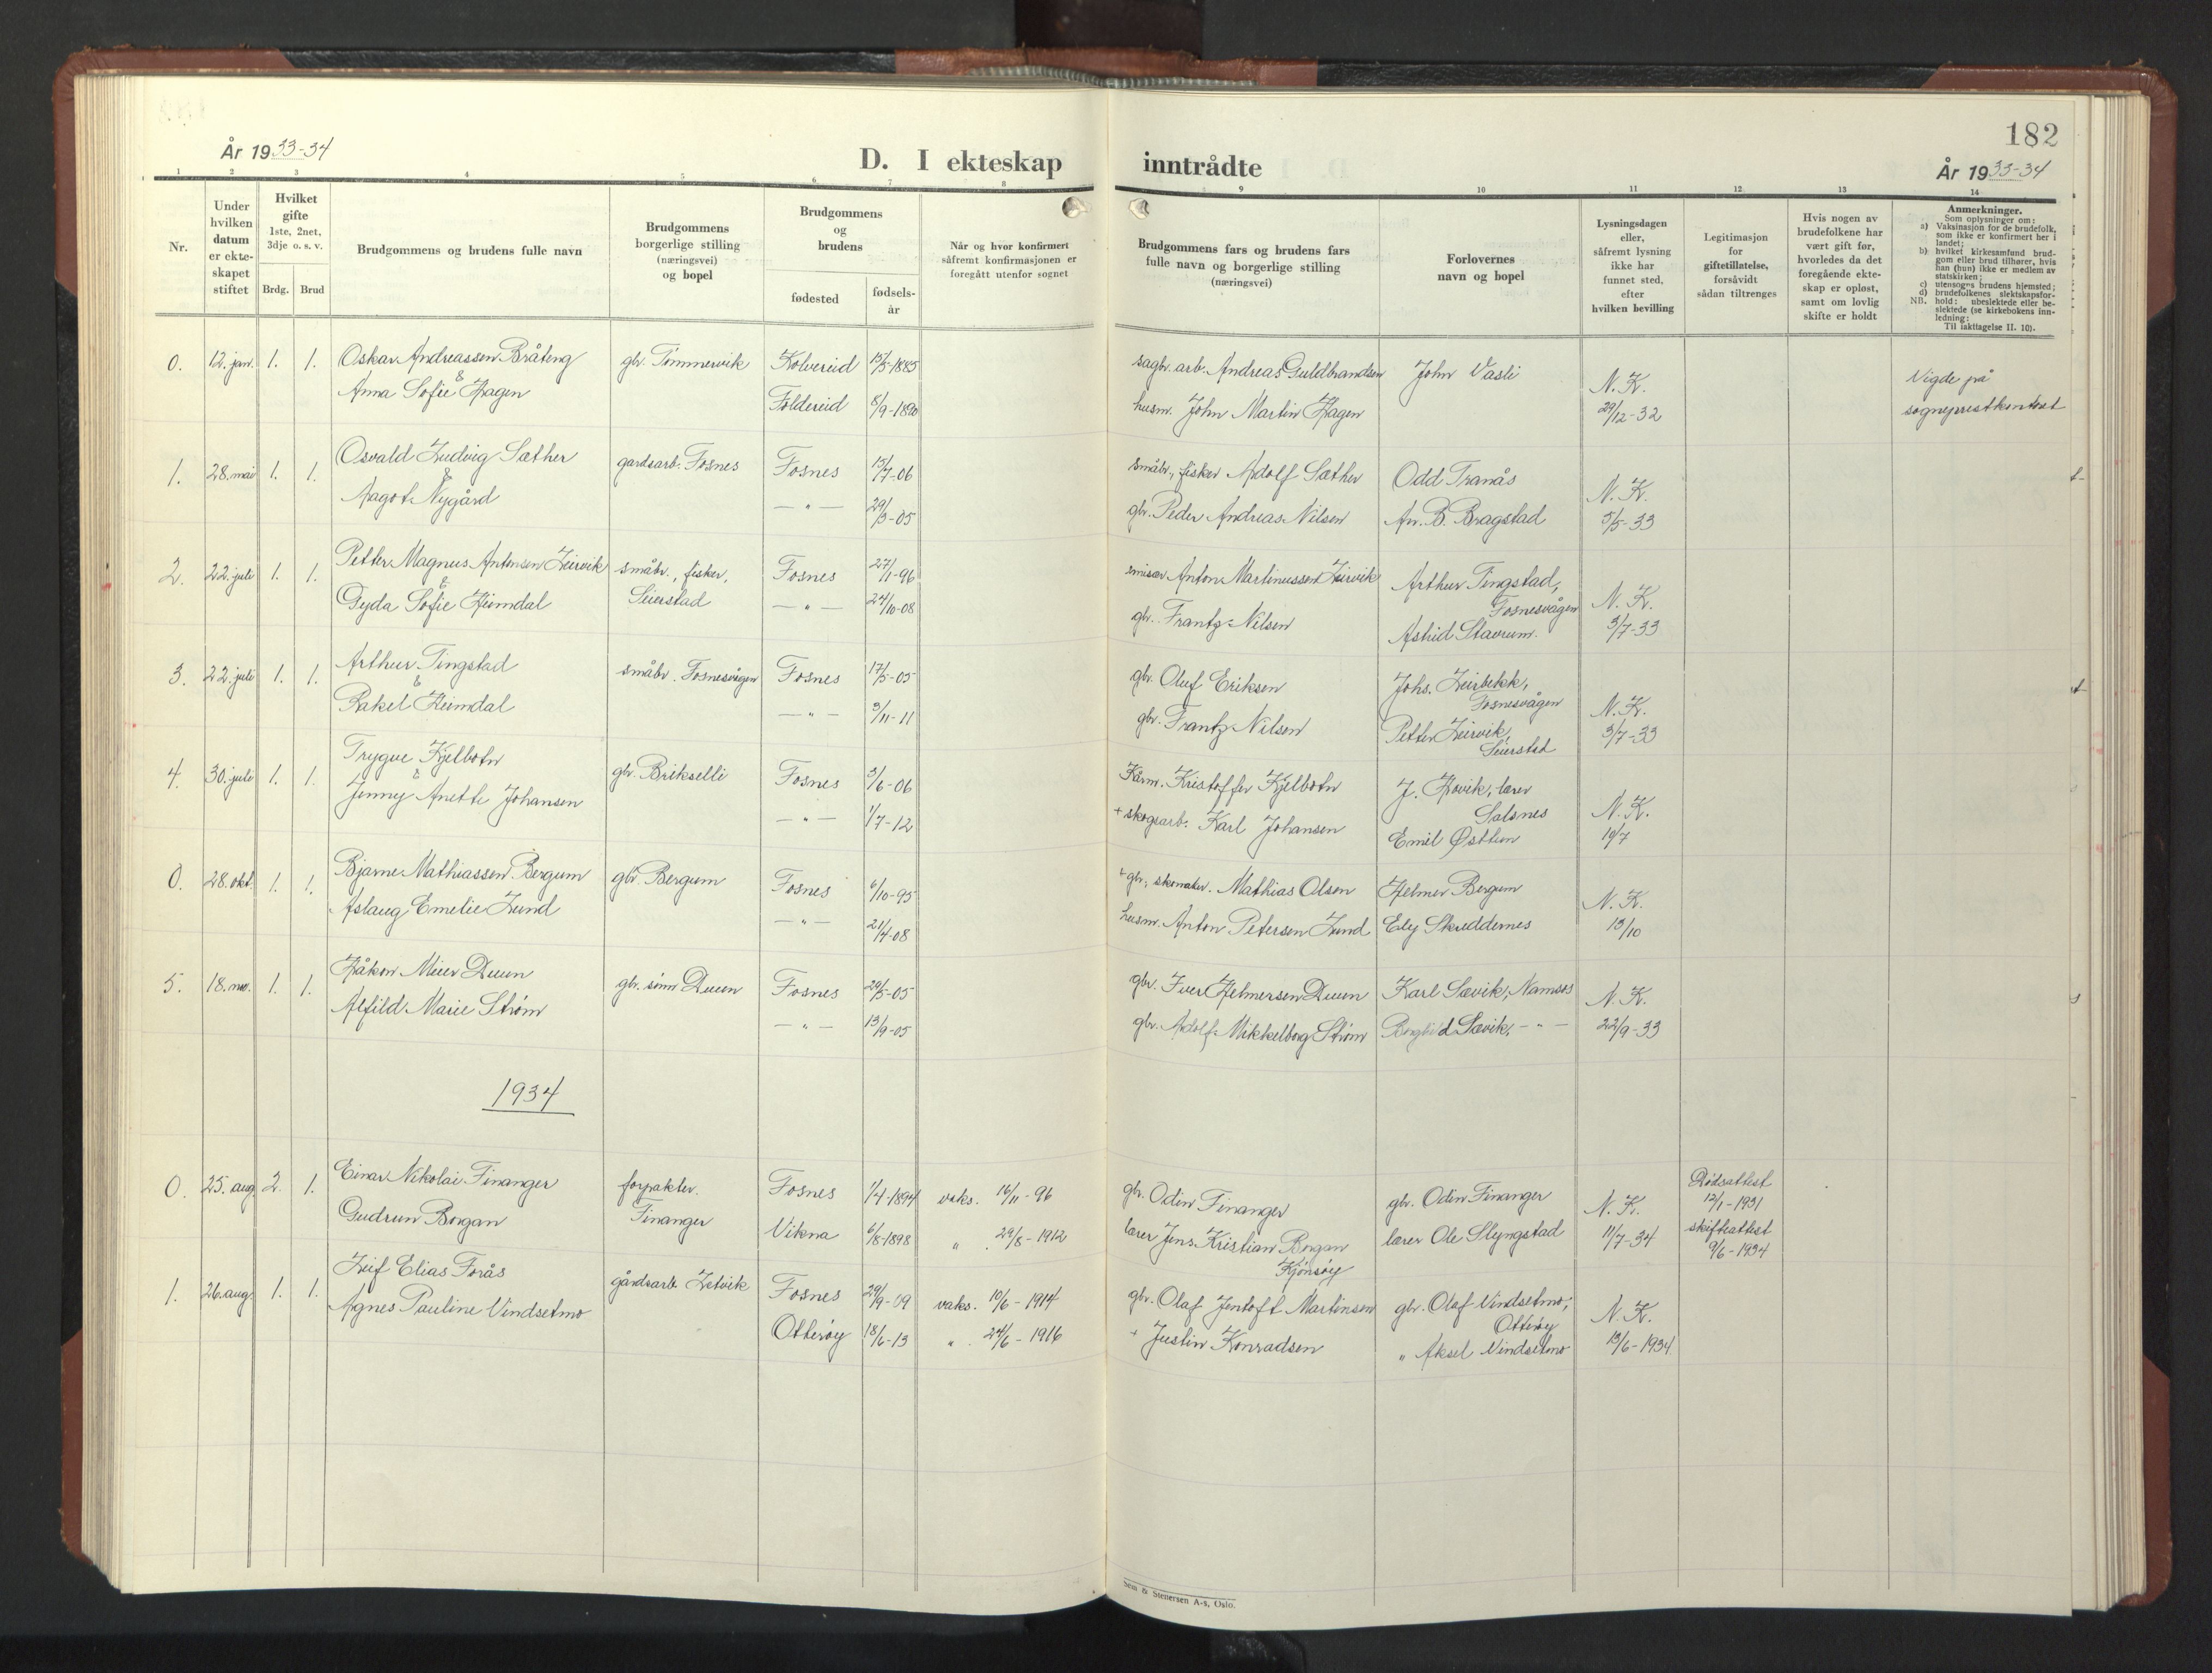 182
År 1933-34
D. I ekteskap inntrådte
År 1933-34
1 2 3 4 5 6 7 8 9 10 11 12 13 14
Nr.
Under
hvilken
datum
er ekte-
skapet
stiftet
Hvilket
gifte
1ste, 2net,
3dje o. s. v.
Brdg. Brud
Brudgommens og brudens fulle navn
Brudgommens
borgerlige stilling
(næringsvei)
og bopel
Brudgommens
og
brudens
fødested
fødsels-
år
Når og hvor konfirmert
såfremt konfirmasjonen er
foregått utenfor sognet
Brudgommens fars og brudens fars
fulle navn og borgerlige stilling
(næringsvei)
Forlovernes
navn og bopel
Lysningsdagen
eller,
såfremt lysning
ikke har
funnet sted,
efter
hvilken bevilling
Legitimasjon
for
giftetillatelse,
forsåvidt
sådan tiltrenges
Hvis nogen av
brudefolkene har
vært gift før,
hvorledes da det
foregående ekte-
skap er opløst,
samt om lovlig
skifte er holdt
Anmerkninger.
Som oplysninger om:
a) Vaksinasjon for de brudefolk,
som ikke er konfirmert her i
landet;
b) hvilket kirkesamfund brud-
gom eller brud tilhører, hvis
han (hun) ikke er medlem av
statskirken;
c) utensogns brudens hjemsted;
d) brudefolkenes slektskapsfor-
hold: ubeslektede eller be-
slektede (se kirkebokens inn-
ledning:
NB. Til iakttagelse II. 10).
0. 12. jan. 1. 1. Oskar Andreassen Bråteng gbr. Tømmervik Kolvereid 15/5-1885 sagbr. arb. Andreas Guldbrandsen John Vasli N.K. Vigde på
& Anna Sofie Hagen Foldereid 8/9-1890 husm. John Martin Hagen 29/12-32 sogneprestkontoret
1. 28. mai 1. 1. Osvald Ludvig Sæther gardsarb. Fosnes Fosnes 15/7-06 småbr., fisker Adolf Sæther Odd Tranås N.K.
& Aagot Nygård —"— 29/3-05 gbr. Peder Andreas Nilsen An. B. Bragstad 5/5-33
2. 22. juli 1. 1. Petter Magnus Antonsen Leirvik småbr., fisker, Fosnes 27/1-96 Anton Martinussen Leirvik Arthur Tingstad,
Fosnesvågen N.K.
& Gyda Sofie Heimdal Seierstad —"— 24/10-08 gbr. Frantz Nilsen Astrid Stavrum. 3/7-33
3. 22. juli 1. 1. Arthur Tingstad småbr. Fosnesvågen Fosnes 17/5-05 gbr. Oluf Eriksen Johs. Leirbekk,
Fosnesvågen N.K.
& Rakel Heimdal —"— 3/11-11 gbr. Frantz Nilsen Petter Leirvik, 3/7-33
Seierstad
4. 30. juli 1. 1. Trygve Kjelbotn gbr. Brikselli Fosnes 3/6-06 Kårm. Kristoffer Kjelbotn J. Hovik, lærer
Salsnes N.K.
& Jenny Anette Johansen —"— 1/7-12 + skogsarb. Karl Johansen Emil Østtun 10/7
0. 28. okt. 1. 1. Bjarne Mathiassen Bergum gbr. Bergum Fosnes 6/10-95 + gbr., skomaker. Mathias Olsen Helmer Bergum N.K.
Aslaug Emelie Lund —"— 21/4-08 husm. Anton Petersen Lund Ely Skreddernes 13/10
5. 18. nov. 1. 1. Håkon Meier Duun gbr. sønn Duun Fosnes 29/5-05 gbr. Iver Helmersen Duun Karl Sævik, Namsos N.K.
Alfild Marie Strøm —"— 13/9-05 gbr. Adolf Mikkelborg Strøm Borghild Sævik, —"— 22/9-33
1934
0. 25. aug 2. 1. Einar Nikolai Finanger forpakter. Fosnes 1/4-1894 vaks. 16/11-96 gbr. Odin Finanger gbr. Odin Finanger N.K. Dødsattest
12/1-1931
Gudrun Borgan Finanger Vikna 6/8-1898 " 29/8-1912 lærer Jens Kristian Borgan lærer Ole Slyngstad 11/7-34 skifteattest
Kjønsøy 9/6-1934
1. 26. aug 1. 1. Leif Elias Forås gårdsarb. Letvik Fosnes 29/9-09 vaks. 10/6-1914 gbr. Olaf Jentoft Martinsen gbr. Olaf Vindsetmo,
Otterøy N.K.
Agnes Pauline Vindsetmo Otterøy 18/6-13 " 24/6-1916 + Justin Konradsen " Aksel Vindsetmo 13/6-1934
Sem & Stenersen A-s, Oslo.